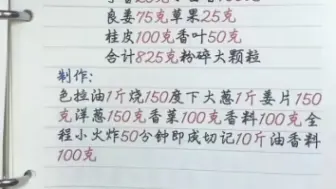 良姜75克草果25克
桂皮100克香叶50克
合计825克粉碎大颗粒
制作:
色拉油1斤烧150度下大葱1斤姜片150
克洋葱150克香菜100克香料100克全
程小火炸50分钟即成切记10斤油香料
100克